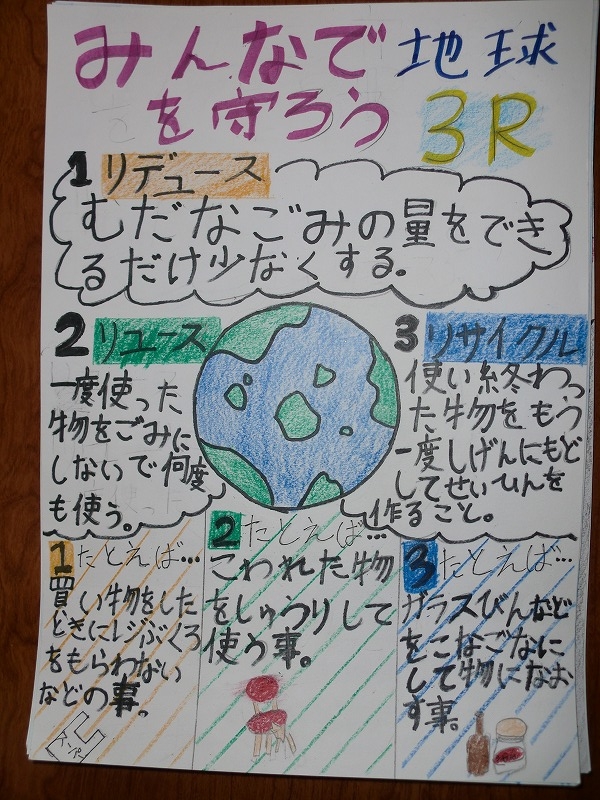 みんなで地球
を守ろう3R
1 リデュース
むだなごみの量をでき
るだけ少なくする。
2 リユース
一度使った
物をごみに
しないで何度
も使う。
3 リサイクル
使い終わっ
た物をもう
一度しげんにもど
してせいひんを
作ること。
1 たとえば…
買い物をした
ときにレジぶくろ
をもらわない
などの事。
2 たとえば…
こわれた物
をしゅうりして
使う事。
3 たとえば…
ガラスびんなど
をこなごなに
して物になお
す事。